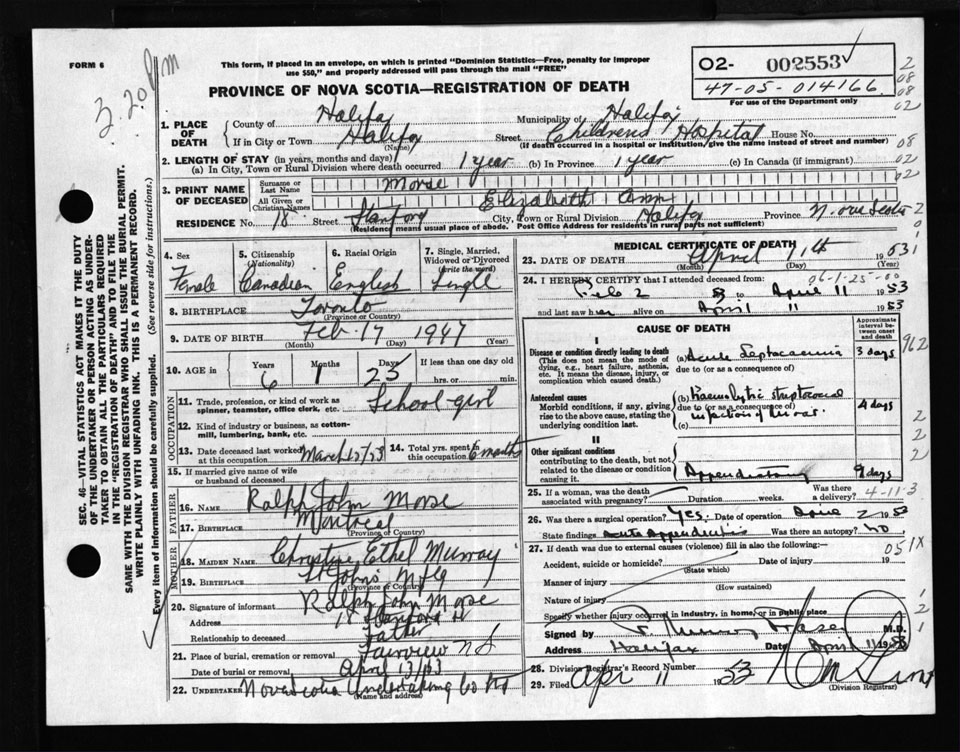 FORM 6
3.20 Pm
This form, if placed in an envelope, on which is printed "Dominion Statistics—Free, penalty for improper
use $50," and properly addressed will pass through the mail "FREE"
02- 002553
47-05-014166
For use of the Department only
PROVINCE OF NOVA SCOTIA—REGISTRATION OF DEATH
1. PLACE OF DEATH
County of Halifax Municipality of Halifax
If in City or Town Halifax Street Childrens Hospital House No.
(Name) (If death occurred in a hospital or institution, give the name instead of street and number)
2. LENGTH OF STAY (in years, months and days)
(a) In City, Town or Rural Division where death occurred 1 year (b) In Province 1 year (c) In Canada (if immigrant)
3. PRINT NAME OF DECEASED
Surname or Last Name Morse
All Given or Christian Names Elizabeth Ann
RESIDENCE No. 18 Street Stanford City, Town or Rural Division Halifax Province Nova Scotia
(Residence means usual place of abode. Post Office Address for residents in rural parts not sufficient)
SEC. 46—VITAL STATISTICS ACT MAKES IT THE DUTY
OF THE UNDERTAKER OR PERSON ACTING AS UNDER-
TAKER TO OBTAIN ALL THE PARTICULARS REQUIRED
IN THE "REGISTRATION OF DEATH" AND TO FILE THE
SAME WITH THE DIVISION REGISTRAR WHO SHALL ISSUE THE BURIAL PERMIT.
WRITE PLAINLY WITH UNFADING INK. THIS IS A PERMANENT RECORD.
Every item of information should be carefully supplied. (See reverse side for instructions.)
4. Sex Female
5. Citizenship (Nationality) Canadian
6. Racial Origin English
7. Single, Married, Widowed or Divorced (write the word) Single
8. BIRTHPLACE Toronto
(Province or Country)
9. DATE OF BIRTH Feb 17 1947
(Month) (Day) (Year)
10. AGE in Years 6 Months 1 Days 25 If less than one day old
hrs. or min.
OCCUPATION
11. Trade, profession, or kind of work as
spinner, teamster, office clerk, etc. School girl
12. Kind of industry or business, as cotton-
mill, lumbering, bank, etc.
13. Date deceased last worked at this occupation March 27/53
14. Total yrs. spent in this occupation 6 months
15. If married give name of wife
or husband of deceased
FATHER
16. NAME Ralph John Morse
17. BIRTHPLACE Montreal
(Province or Country)
MOTHER
18. MAIDEN NAME Christine Ethel Murray
19. BIRTHPLACE St John's Nfld
(Province or Country)
20. Signature of informant Ralph John Morse
Address 18 Stanford St
Relationship to deceased Father
21. Place of burial, cremation or removal Fairview N S
Date of burial or removal April 13/53
22. UNDERTAKER Nova Scotia Undertaking Co Ltd
(Name and address)
MEDICAL CERTIFICATE OF DEATH
23. DATE OF DEATH April 11th 1953
(Month) (Day) (Year)
06-1-25-00
24. I HEREBY CERTIFY that I attended deceased from:
Feb 2 53 to April 11 1953
and last saw her alive on April 11 1953
CAUSE OF DEATH
Approximate interval between onset and death
I
Disease or condition directly leading to death
(This does not mean the mode of dying, e.g., heart failure, asthenia, etc. It means the disease, injury, or complication which caused death.)
(a) Acute Septocaemia 3 days
due to (or as a consequence of)
Antecedent causes
Morbid conditions, if any, giving rise to the above cause, stating the underlying condition last.
(b) Haemolytic streptococcal
due to (or as a consequence of)
infection of throat. 4 days
(c)
II
Other significant conditions
contributing to the death, but not related to the disease or condition causing it.
Appendectomy 9 days
25. If a woman, was the death associated with pregnancy? Duration weeks. Was there a delivery?
4-11-3
26. Was there a surgical operation? Yes. Date of operation 2 1953
State findings Acute Appendicitis Was there an autopsy? No
27. If death was due to external causes (violence) fill in also the following:—
051X
Accident, suicide or homicide? Date of injury 19
(State which)
Manner of injury
(How sustained)
Nature of injury
Specify whether injury occurred in industry, in home, or in public place
Signed by Murray Fraser M.D.
Address Halifax Date April 11 1953
28. Division Registrar's Record Number
29. Filed Apr 11 1953
(Division Registrar)